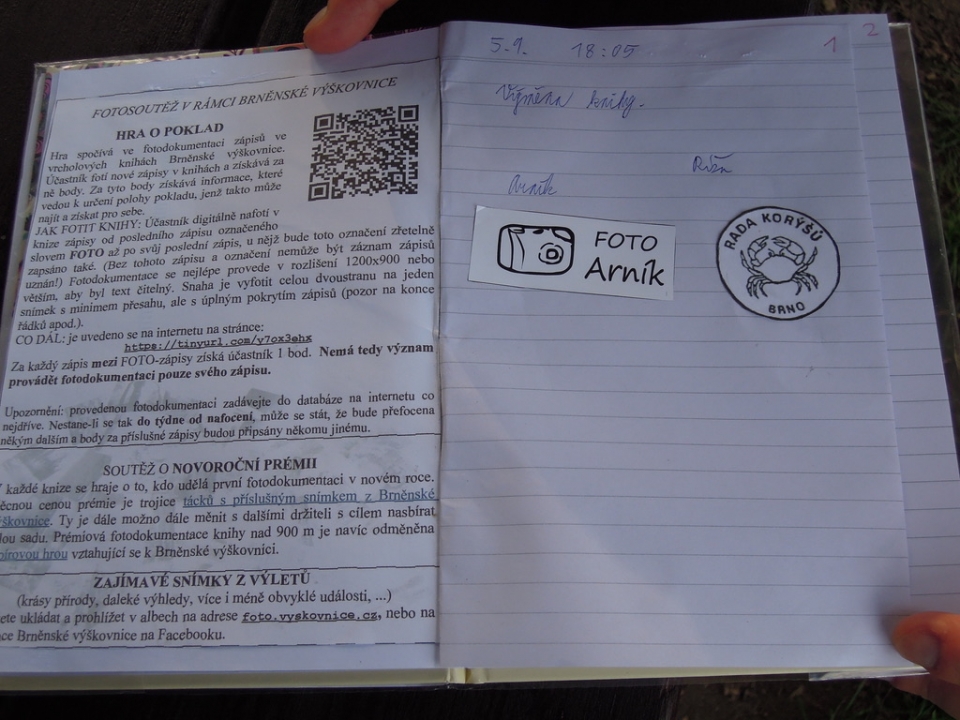 FOTOSOUTĚŽ V RÁMCI BRNĚNSKÉ VÝŠKOVNICE
HRA O POKLAD
Hra spočívá ve fotodokumentaci zápisů ve
vrcholových knihách Brněnské výškovnice.
Účastník fotí nové zápisy v knihách a získává za
ně body. Za tyto body získává informace, které
vedou k určení polohy pokladu, jenž takto může
najít a získat pro sebe.
JAK FOTIT KNIHY: Účastník digitálně nafotí v
knize zápisy od posledního zápisu označeného
slovem FOTO až po svůj poslední zápis, u nějž bude toto označení zřetelně
zapsáno také. (Bez tohoto zápisu a označení nemůže být záznam zápisů
uznán!) Fotodokumentace se nejlépe provede v rozlišení 1200x900 nebo
větším, aby byl text čitelný. Snaha je vyfotit celou dvoustranu na jeden
snímek s minimem přesahu, ale s úplným pokrytím zápisů (pozor na konce
řádků apod.).
CO DÁL: je uvedeno se na internetu na stránce:
https://tinyurl.com/y7ox3ehx
Za každý zápis mezi FOTO-zápisy získá účastník 1 bod. Nemá tedy význam
provádět fotodokumentaci pouze svého zápisu.
Upozornění: provedenou fotodokumentaci zadávejte do databáze na internetu co
nejdříve. Nestane-li se tak do týdne od nafocení, může se stát, že bude přefocena
někým dalším a body za příslušné zápisy budou připsány někomu jinému.
SOUTĚŽ O NOVOROČNÍ PRÉMII
každé knize se hraje o to, kdo udělá první fotodokumentaci v novém roce.
ěcnou cenou prémie je trojice tácků s příslušným snímkem z Brněnské
ýškovnice. Ty je dále možno dále měnit s dalšími držiteli s cílem nasbírat
lou sadu. Prémiová fotodokumentace knihy nad 900 m je navíc odměněna
pírovou hrou vztahující se k Brněnské výškovnici.
ZAJÍMAVÉ SNÍMKY Z VÝLETŮ
(krásy přírody, daleké výhledy, více i méně obvyklé události, ...)
ete ukládat a prohlížet v albech na adrese foto.vyskovnice.cz, nebo na
ce Brněnské výškovnice na Facebooku.
5.9. 18:05 1
2
Výměna knihy.
Arník
FOTO
Arník
RADA KORÝŠŮ
BRNO